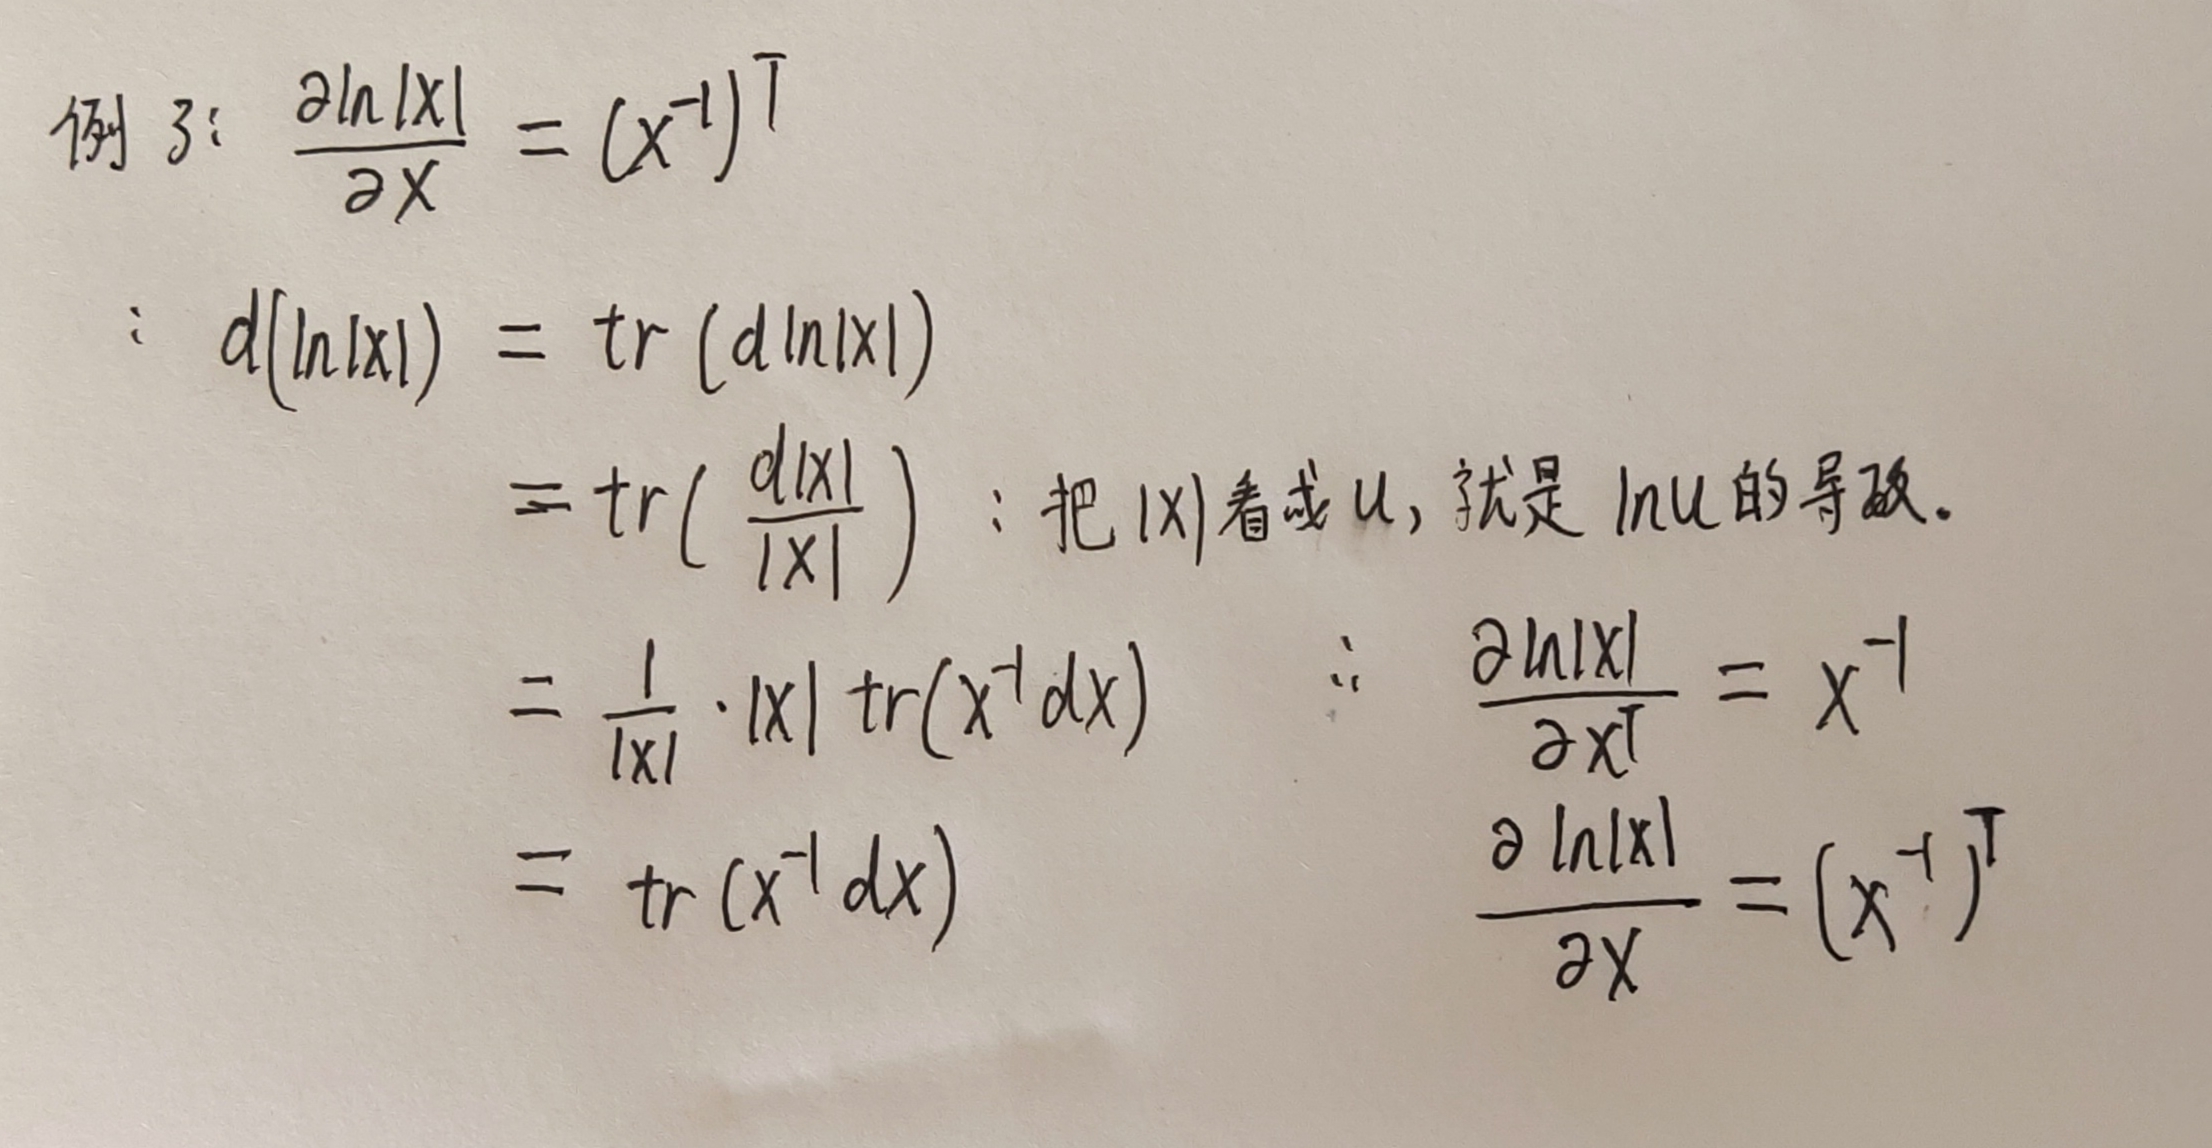 例3: ∂ln|X| / ∂X = (X⁻¹)ᵀ
: d(ln|X|) = tr(d ln|X|)
= tr(d|X| / |X|) : 把|X|看成u, 就是lnu的导数.
= 1/|X| · |X| tr(X⁻¹dX)
= tr(X⁻¹dX)
∴ ∂ln|X| / ∂Xᵀ = X⁻¹
∂ln|X| / ∂X = (X⁻¹)ᵀ